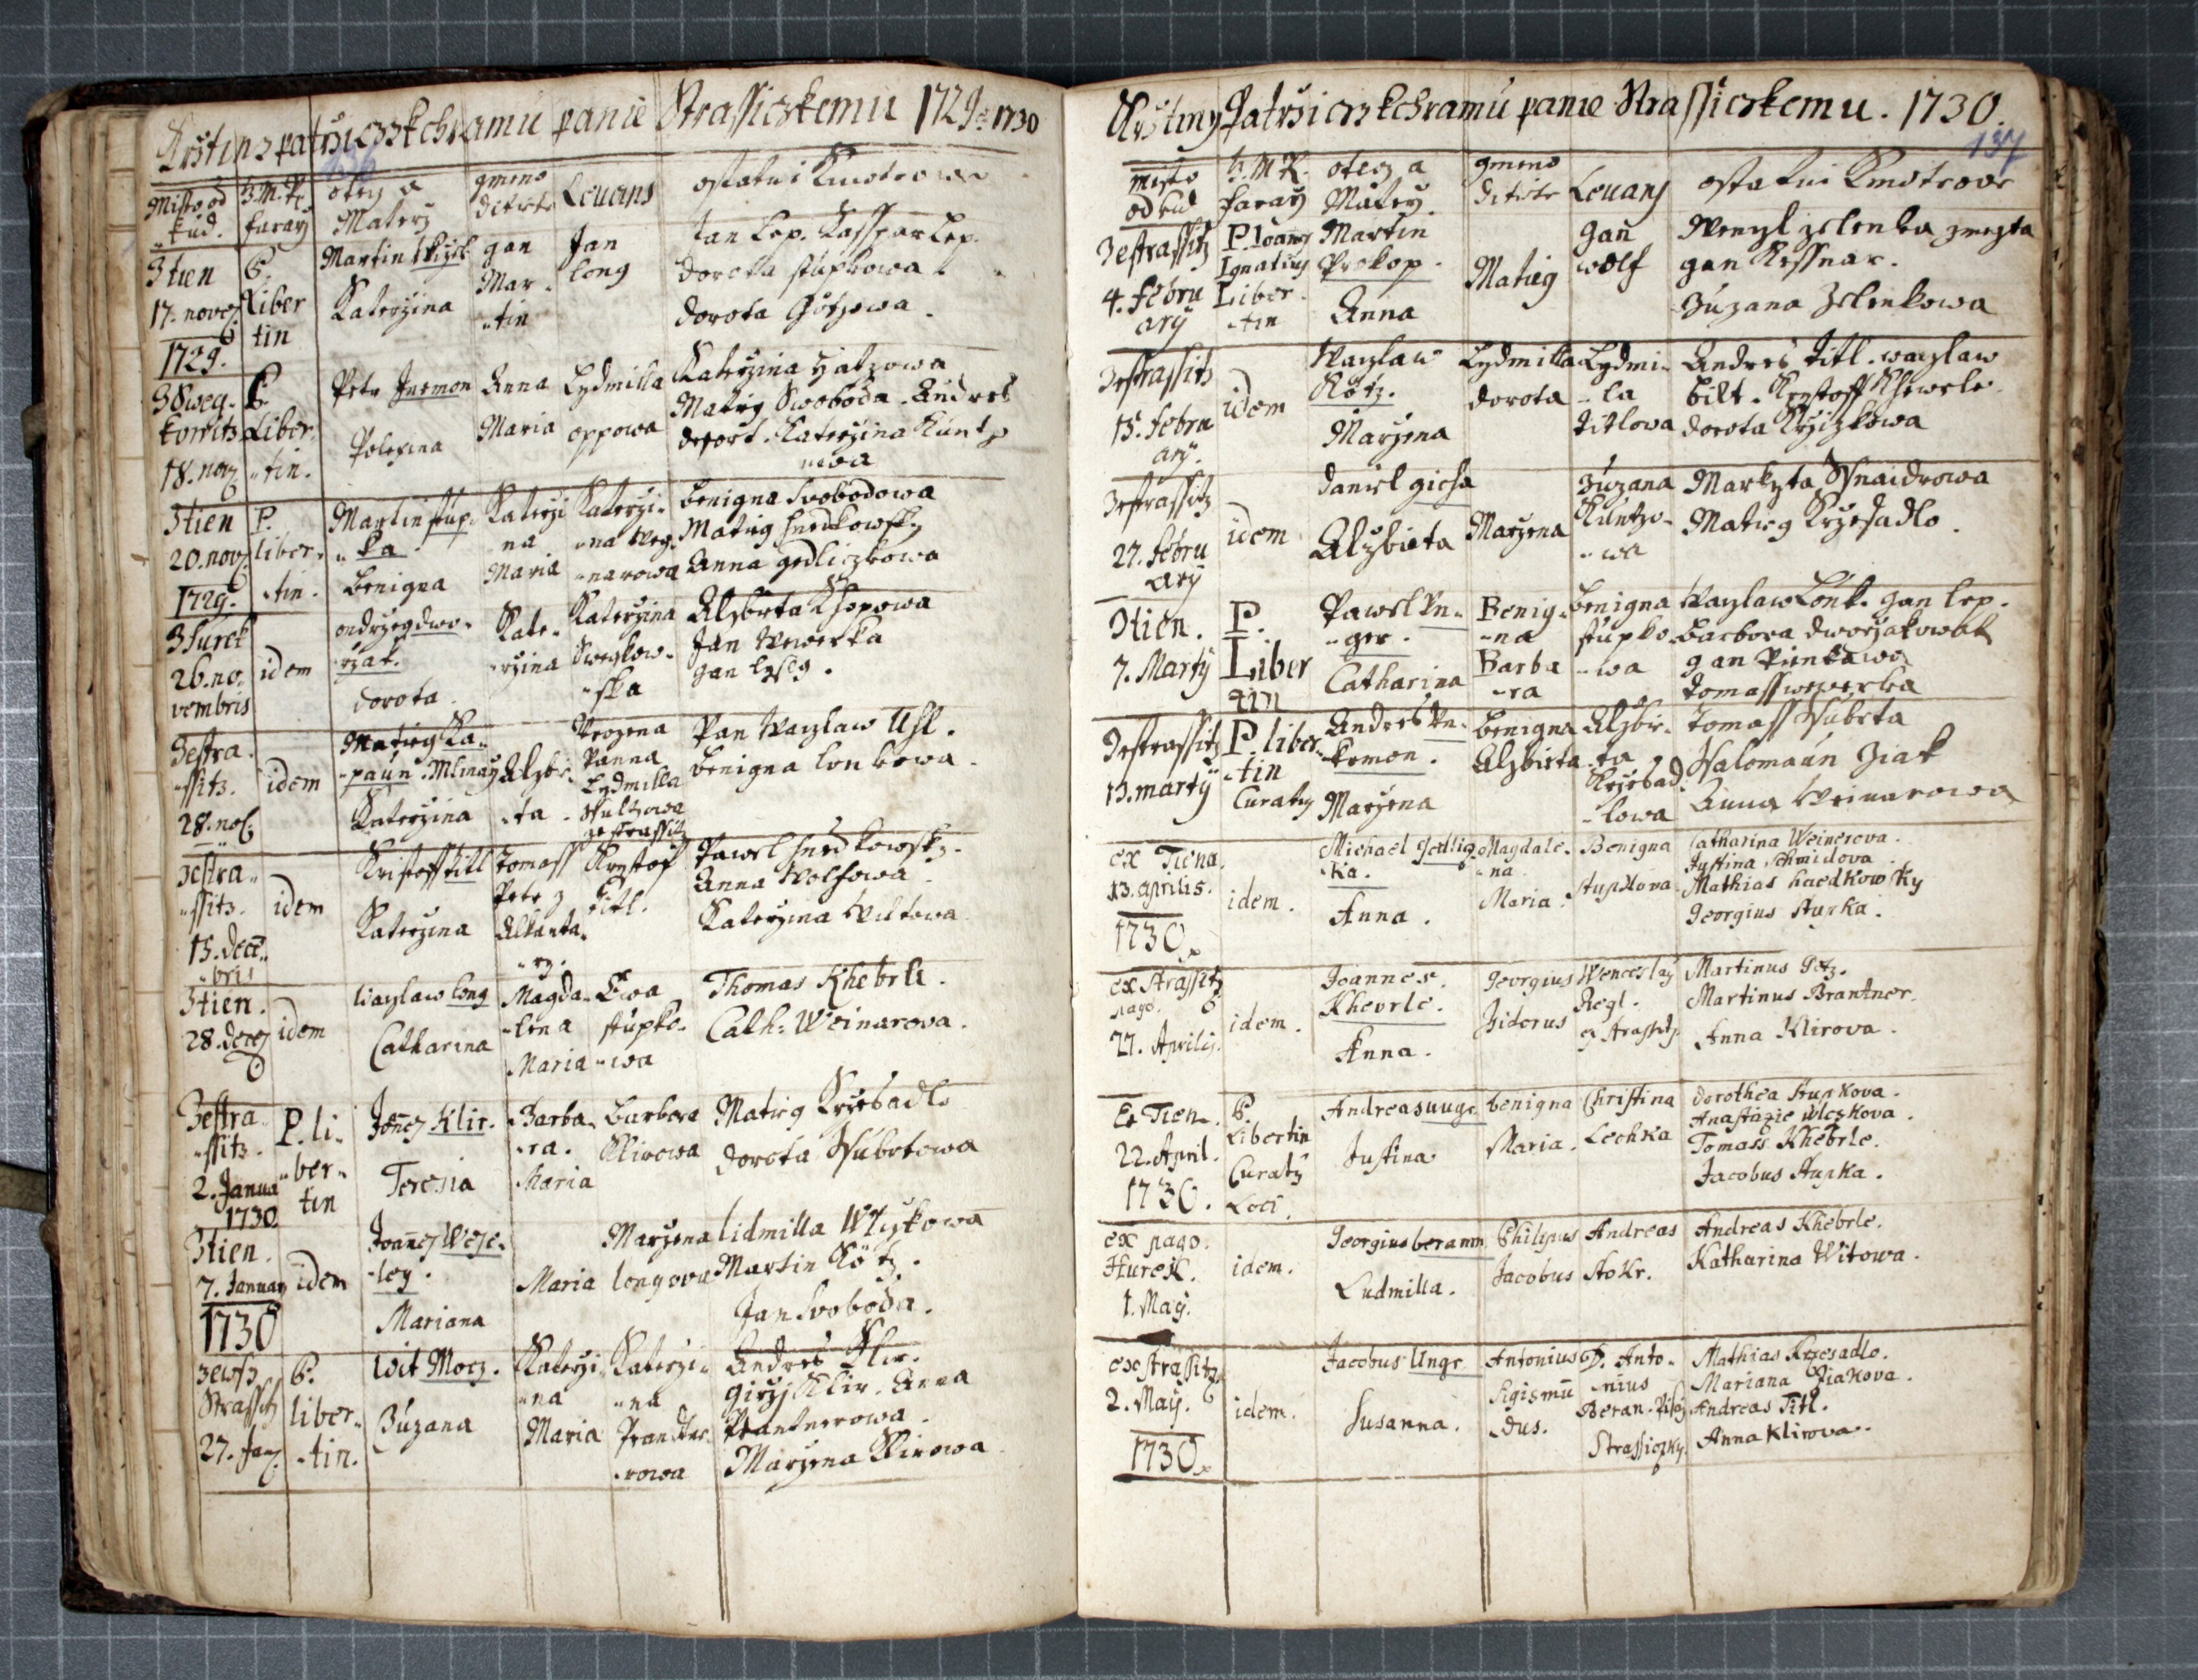 Krstiny patrsicz k chramu panie Strassiczkemu 1729 1730
136
Misto od kud. | fararz | otecz a Materz | gmeno ditiete | Leuans | ostatni Kmotrowe
Ztien 17. novē 1729. | P. Liber tin | Martin Katerzina | Jan Mar- tin | Jan long | Jan Lep. Kasspar Lep.
dorota stupkowa
dorota Götzowa.
18. nov | P. Liber- tin. | Petr Polexina | Anna Maria | Lydmilla oppowa | Katerzina
Matieg Swoboda. Andres
Katerzina Kuntzowa
Ztien 20. nov. 1729. | P. liber- tin. | Martin stup- ka. Benigna | Katerzi na Maria | Katerzi- na Weg- narowa | Benigna Svobodowa
Matieg hredkowsky
Anna gedliczkowa
Zhurek 26. no- vembris | idem | ondrzeg dwo- rzak. dorota. | Kate- rzina | Katerzina | Alzbieta
Jan Wewerka
gan
Zestra- ssitz. 28. | idem | Matieg Ka- paun. Mlinarz Katerzina | Alzbie- ta. | Panna Lydmilla ze strassitz | Pan Wazlaw Uhl.
Benigna lonkowa.
Zestra- ssitz. 15. Decē- bris | idem | Kristoff titl Katerzina | Tomass Petr z Alkanta- ry. | Krystof Titl. | Pawel hredkowsky.
Anna Wolfowa.
Katerzina Wiltowa
Ztien. 28. decē | idem | Wazlaw long Catharina | Magda- lena Maria | Ewa stupko- wa | Thomas Khebrle.
Cath: Weinarova.
Zestra- ssitz. 2. Janua 1730 | P. li- ber- tin | Joanes Klir. Teresia | Barba- ra. Maria | Barbora Klirowa | Matieg Krzesadlo
dorota
Ztien. 7. January 1730 | idem | Joannes Weje- ley. Mariana | Maria | Marzena longova | lidmilla Wlczkowa
Martin Kötz.
Jan Svoboda.
zewsy Strassitz 27. Jan. | P. liber- tin. | Wit Morz. Zuzana | Katerzi- na Maria | Katerzi- na rowa | Andres Klir.
Girzj Klir. Anna
Prantnerowa.
Marzena Klirowa
Krstiny Patrsicz k chramu panie Strassiczkemu. 1730.
137
misto od kud | fararz | otecz a Materz. | gmeno ditiete | Leuans | ostatni Kmotrove
Zestrassitz 4. Febru ary | P. Ioanes Ignatius Liber- tin | Martin Prokop. Anna | Matieg | gan wolf | Wenzl zelenka
gan Kessnar.
Zuzana Zelenkowa
Zestrassitz 15. Febru ary. | idem | Wazlaw Kötz. Marzena | Lydmilla dorota | Lydmi- la titlowa | Andres Titl. wazlaw
bilt. Krystoff Khewrle
dorota Krziczkowa
Zestrassitz 27. Febru ary | idem | daniel gicha Alzbieta | Marzena | Zuzana Kuntzo- wa | Markyta Ssnaidrowa
Matieg Krzesadlo.
Ztien. 7. Marty | P. Liber tin | Pawel Un- ger. Catharina | Benig- na Barba- ra | Benigna stupko- wa | Wazlaw Lonk. gan Lep.
Barbora dworzakowa
gan
Tomass wewerka
Zestrassitz 13. marty | P. liber- tin Curatus | Andres Marzena | Benigna Alzbieta | Alzbie- ta Krzesad- lowa | Tomass
Salomaun Ziak
Anna Weinarowa
ex Tiena. 13. aprilis. 1730. | idem. | Michael Jedlicz- ka. Anna. | Magdale- na. Maria. | Benigna stupkova | Catharina Weinerova.
Justina Schmidova.
Mathias haedkowsky
Georgius Stupka.
ex Strassitz pago. 27. Aprilis. | idem. | Joannes. Khevrle. Anna. | Georgius Isidorus | Wenceslaus Regl. ex strassitz. | Martinus Götz.
Martinus Brantner.
Anna Klirova.
Ex Tien. 22. April. 1730. | P. Libertin Curatus Loci. | Andreas unger Justina | benigna Maria. | Christina Lechka | dorothea Stupkova.
Anastazie wlczkova.
Tomass Khebrle.
Jacobus Stupka.
ex pago. Hurek. 1. May. | idem. | Georgius beramm Ludmilla. | Philipus Jacobus | Andreas Stokr. | Andreas Khebrle.
Katharina Witowa.
ex Strassitz 2. May. 1730. | idem. | Jacobus Unger Susanna. | Antonius Sigismū- dus. | D. Anto- nius Beran. Strassiczky. | Mathias Krzesadlo.
Mariana Ziakova.
Andreas Titl.
Anna Klirova.